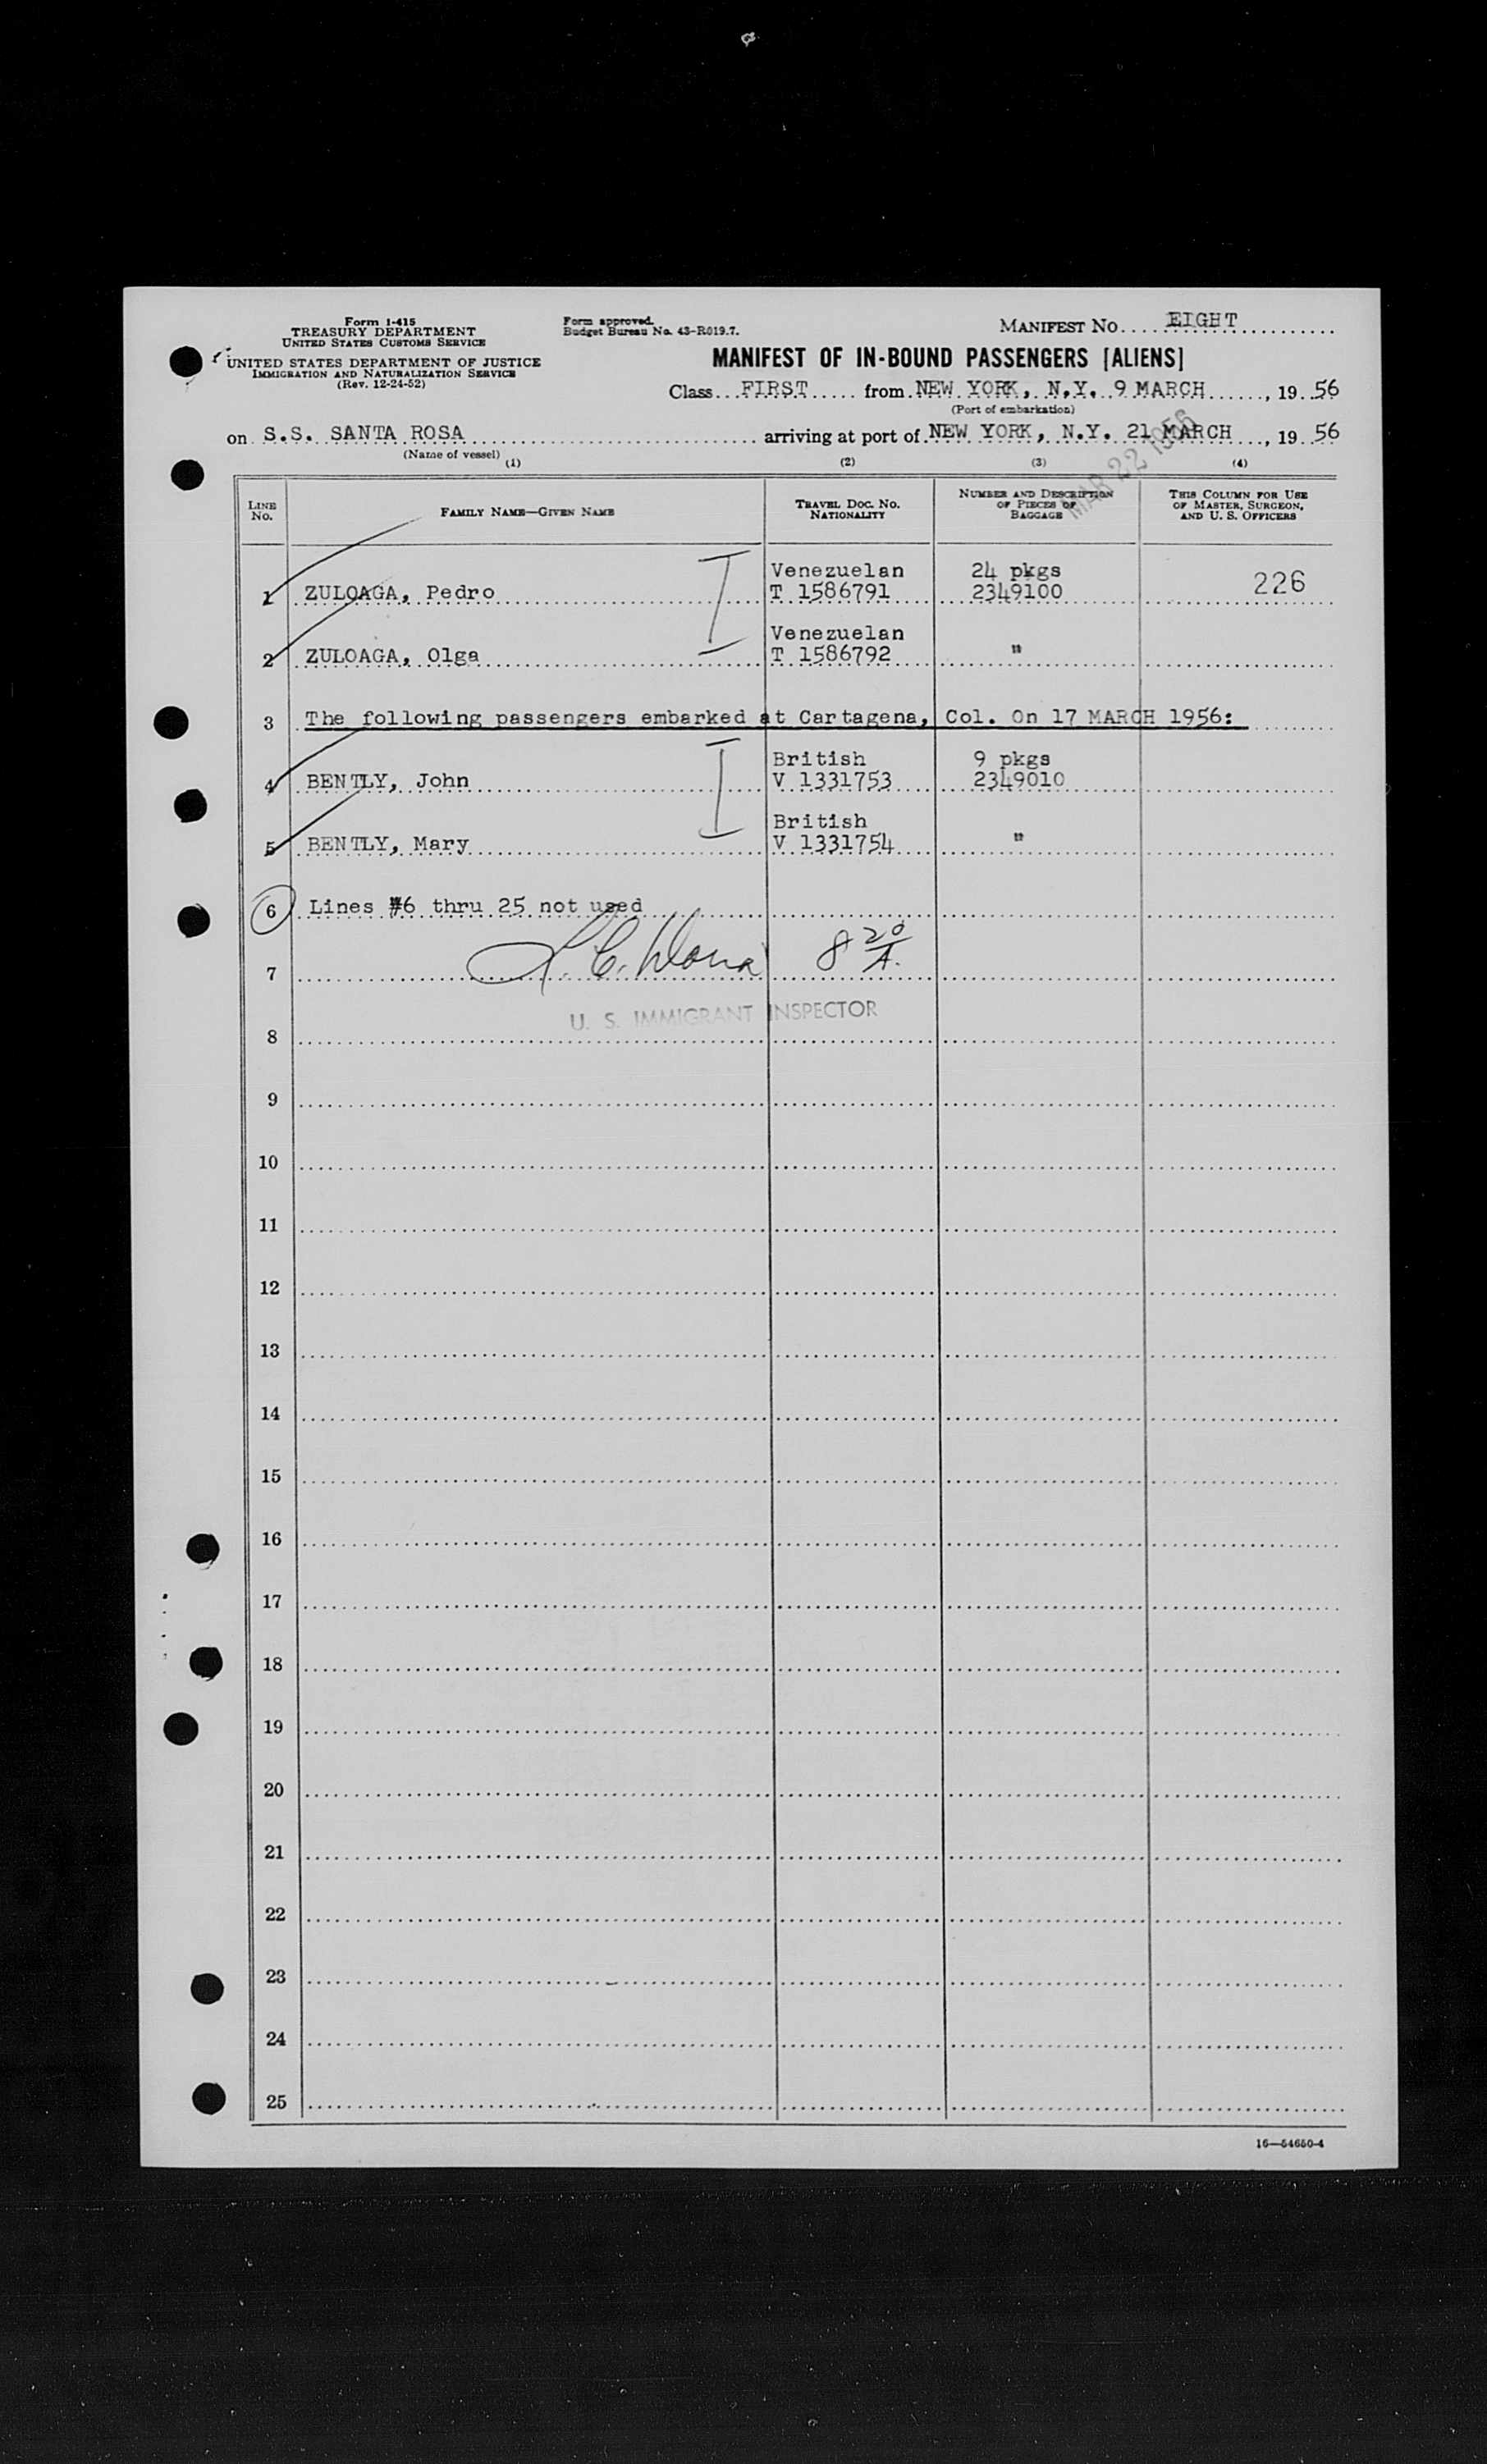 Form I-415
TREASURY DEPARTMENT
UNITED STATES CUSTOMS SERVICE
UNITED STATES DEPARTMENT OF JUSTICE
IMMIGRATION AND NATURALIZATION SERVICE
(Rev. 12-24-52)
Form approved.
Budget Bureau No. 43-R019.7.
MANIFEST NO. EIGHT
MANIFEST OF IN-BOUND PASSENGERS [ALIENS]
Class FIRST from NEW YORK, N.Y. 9 MARCH, 19 56
(Port of embarkation)
on S.S. SANTA ROSA arriving at port of NEW YORK, N.Y. 21 MARCH, 19 56
(Name of vessel)
MAR 22 1956
(1) (2) (3) (4)
LINE NO. FAMILY NAME—GIVEN NAME TRAVEL DOC. NO. NATIONALITY NUMBER AND DESCRIPTION OF PIECES OF BAGGAGE THIS COLUMN FOR USE OF MASTER, SURGEON, AND U. S. OFFICERS
Venezuelan 24 pkgs
1 ZULOAGA, Pedro T 1586791 2349100 226
Venezuelan
2 ZULOAGA, Olga T 1586792 "
3 The following passengers embarked at Cartagena, Col. On 17 MARCH 1956:
British 9 pkgs
4 BENTLY, John V 1331753 2349010
British
5 BENTLY, Mary V 1331754 "
6 Lines #6 thru 25 not used
7 8 20 A.
U. S. IMMIGRANT INSPECTOR
8
9
10
11
12
13
14
15
16
17
18
19
20
21
22
23
24
25
16—54650-4